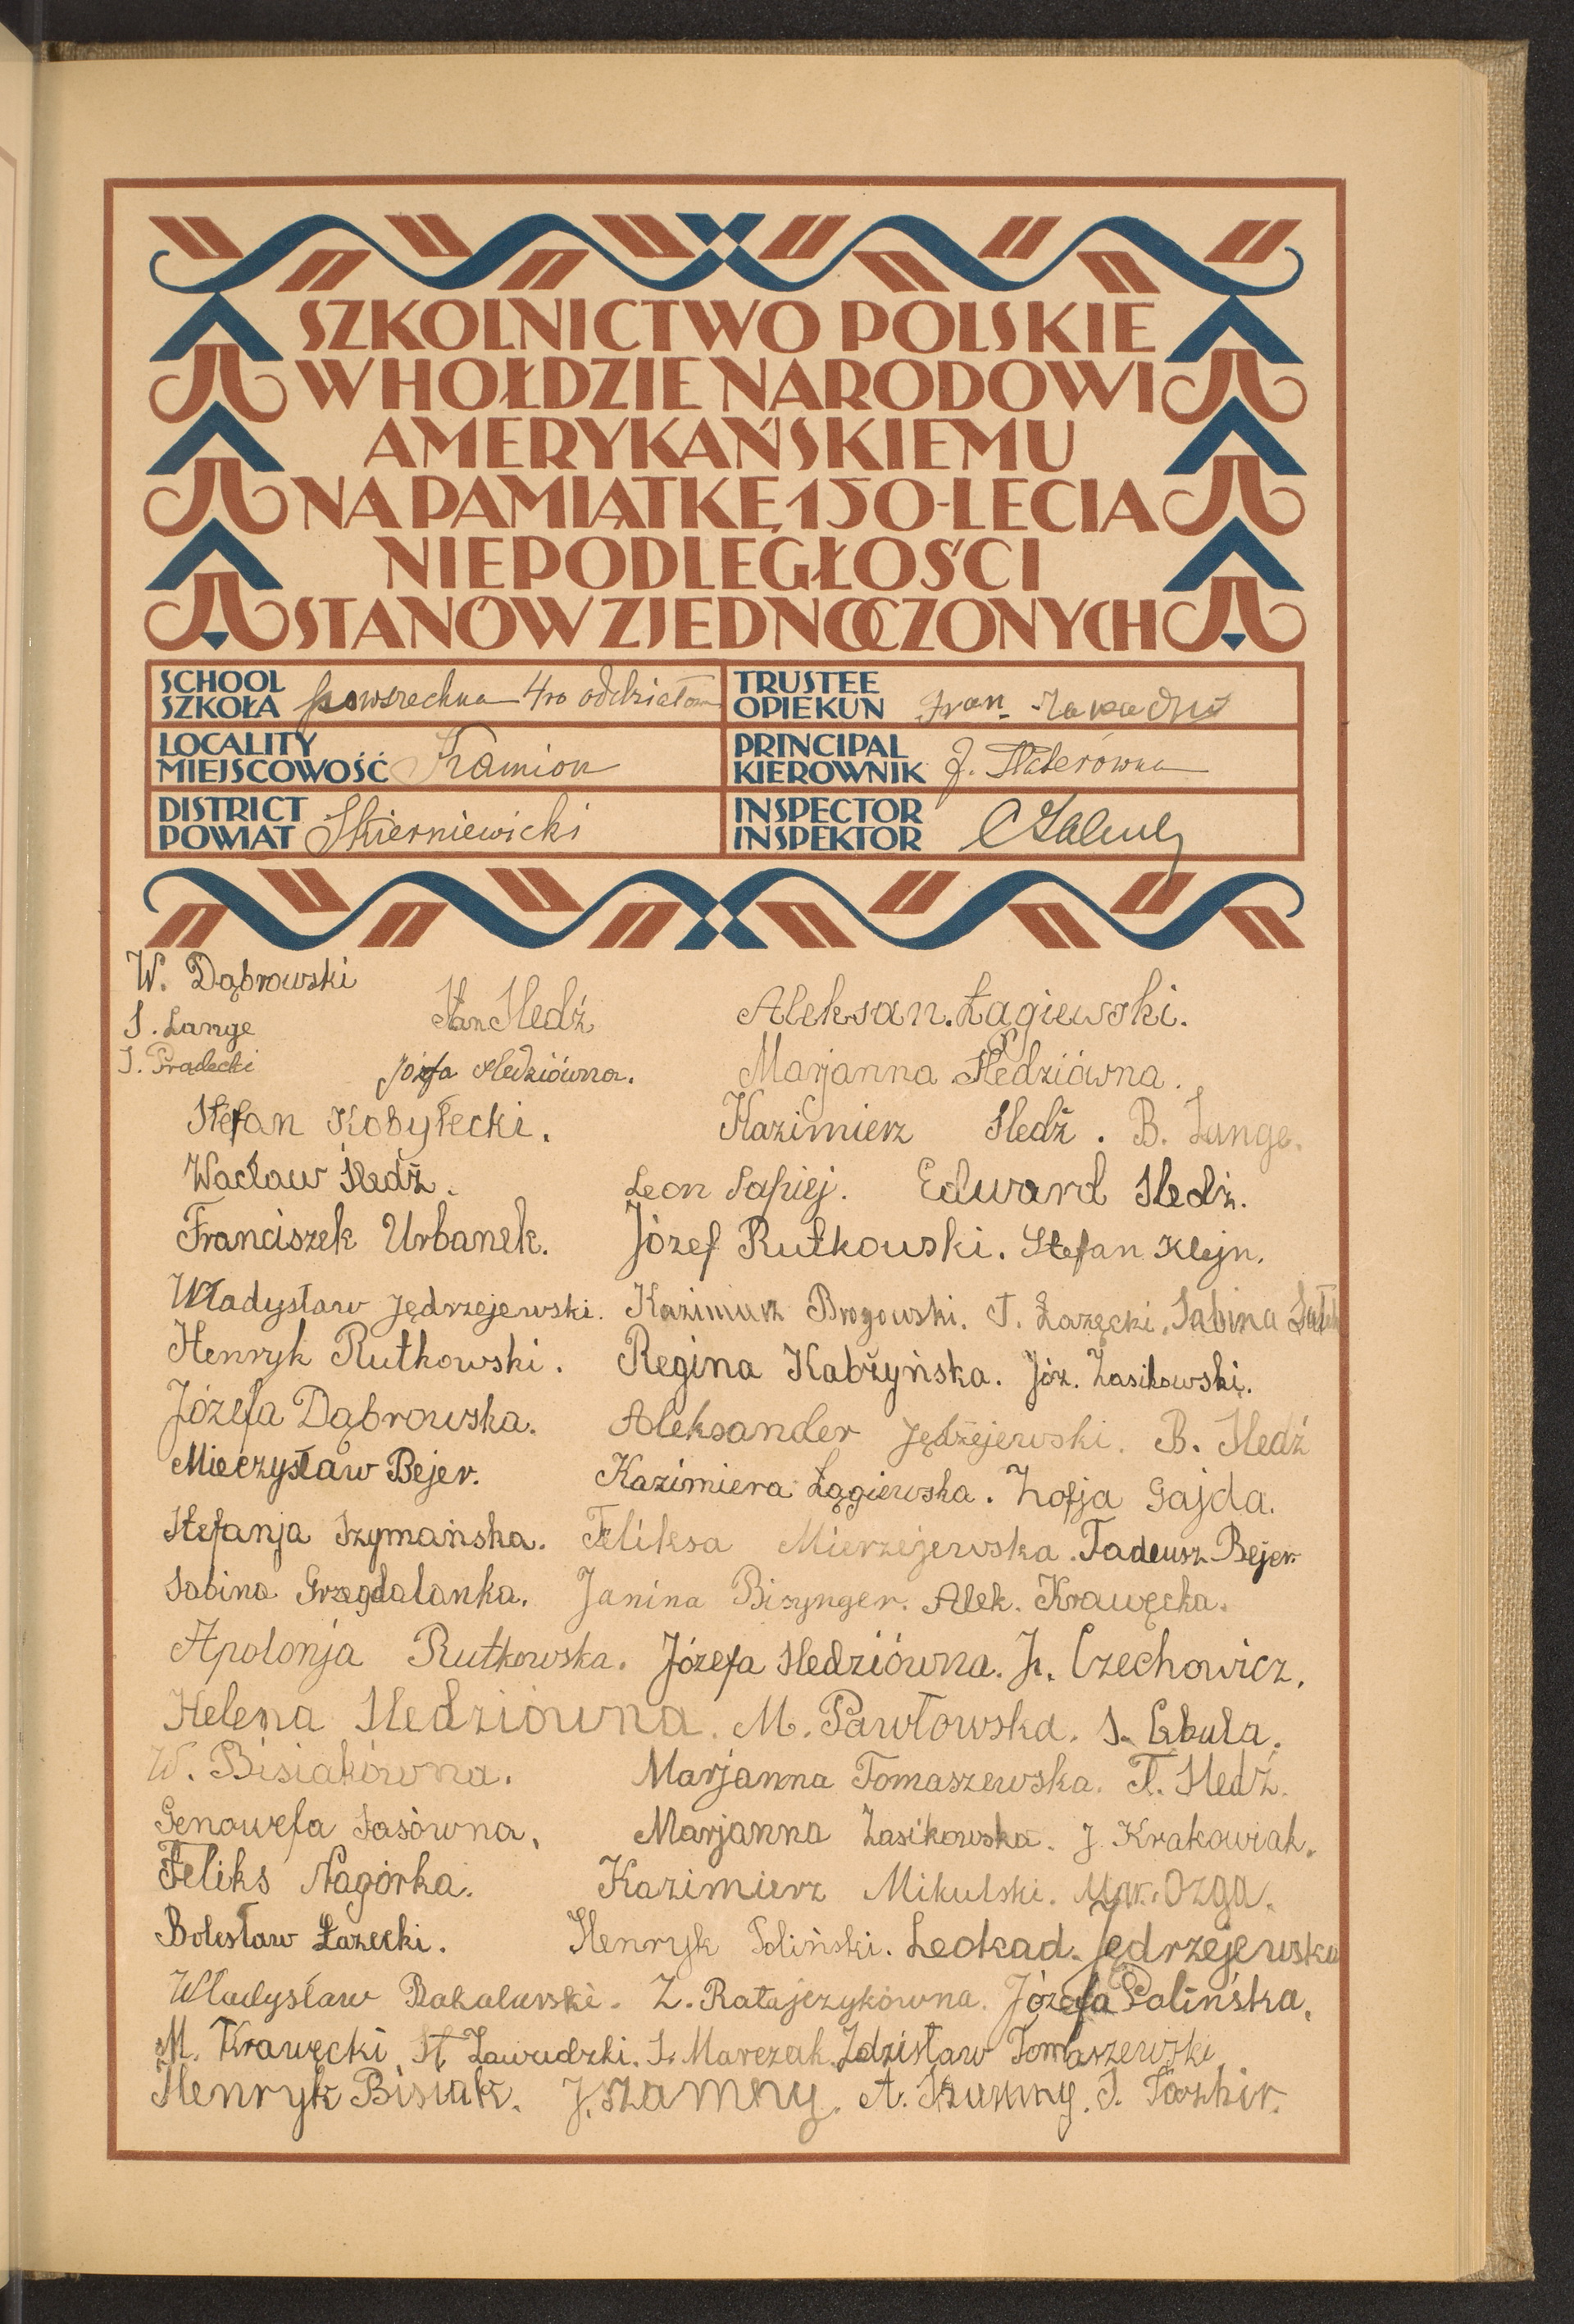 SZKOLNICTWO POLSKIE
W HOŁDZIE NARODOWI
AMERYKAŃSKIEMU
NA PAMIĄTKĘ 150-LECIA
NIEPODLEGŁOŚCI
STANÓW ZJEDNOCZONYCH
SCHOOL
SZKOŁA powszechna 4ro oddziałow
TRUSTEE
OPIEKUN Fran.
LOCALITY
MIEJSCOWOŚĆ Kamion
PRINCIPAL
KIEROWNIK J.
DISTRICT
POWIAT Skierniewicki
INSPECTOR
INSPEKTOR
W. Dąbrowski
S. Lange Stan Sledź Aleksan. Łagiewski.
J. Prądecki Józefa Sledziówna. Marjanna Śledziówna.
Stefan Kobyłecki. Kazimierz Sledź. B. Lange.
Wacław Śledź. Leon Sapiej. Edward Sledź.
Franciszek Urbanek. Józef Rutkowski. Stefan Klejn.
Władysław Jędrzejewski. Kazimierz Brogowski. T. Łazęcki. Sabina
Henryk Rutkowski. Regina Kabżyńska. Józ. Zasikowski.
Józefa Dąbrowska. Aleksander Jędżejewski. B. Sledź
Mieczysław Bejer. Kazimiera Łągiewska. Zofja Gajda.
Stefanja Szymańska. Feliksa Mierzejewska. Tadeusz Bejer
Sabina Grzegdalanka. Janina Bisynger. Alek. Krawęcka.
Apolonja Rutkowska. Józefa Sledziówna. J. Czechowicz.
Helena Sledziówna. M. Pawłowska. S. Cebula.
W. Bisiakówna. Marjanna Tomaszewska. F. Sledź.
Genowefa Sasówna. Marjanna Zasikowska. J. Krakowiak.
Feliks Nagórka. Kazimierz Mikulski. Mar. Ozga.
Bolesław Łazecki. Henryk Soliński. Leokad. Jędrzejewska
Władysław Bakalarski. Z. Ratajczykówna. Józefa Palińska.
M. Krawęcki. St. Zawadzki. S. Marczak. Zdzisław Tomaszewski
Henryk Bisiak. J. Szamny. A. Szumny. J.